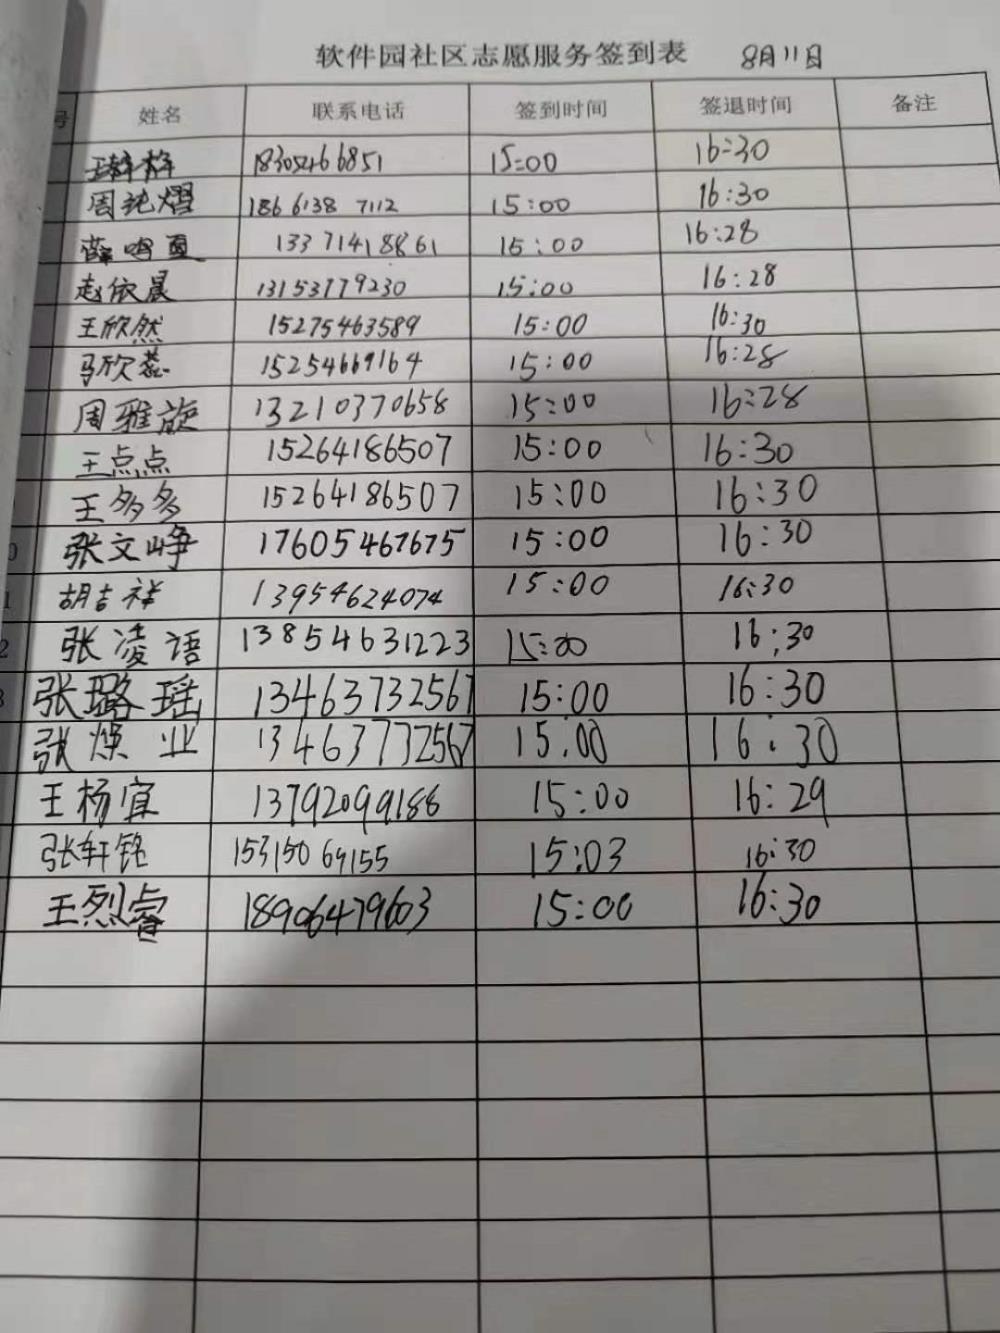 软件园社区志愿服务签到表 8月11日
号 姓名 联系电话 签到时间 签退时间 备注
18305466851 15:00 16:30
周纯熠 186 6138 7112 15:00 16:30
薛 13371418861 15:00 16:28
赵依晨 13153779230 15:00 16:28
王欣然 15275463589 15:00 16:30
马欣蕊 15254669164 15:00 16:28
周雅旋 13210370658 15:00 16:28
王点点 15264186507 15:00 16:30
王多多 15264186507 15:00 16:30
0 张文峥 17605467675 15:00 16:30
1 胡吉祥 13954624074 15:00 16:30
2 张凌语 13854631223 15:00 16:30
3 张璐瑶 13463732567 15:00 16:30
张燦业 13463732567 15:00 16:30
王杨宜 13792099188 15:00 16:29
张轩铭 15315069155 15:03 16:30
王烈睿 18906479603 15:00 16:30